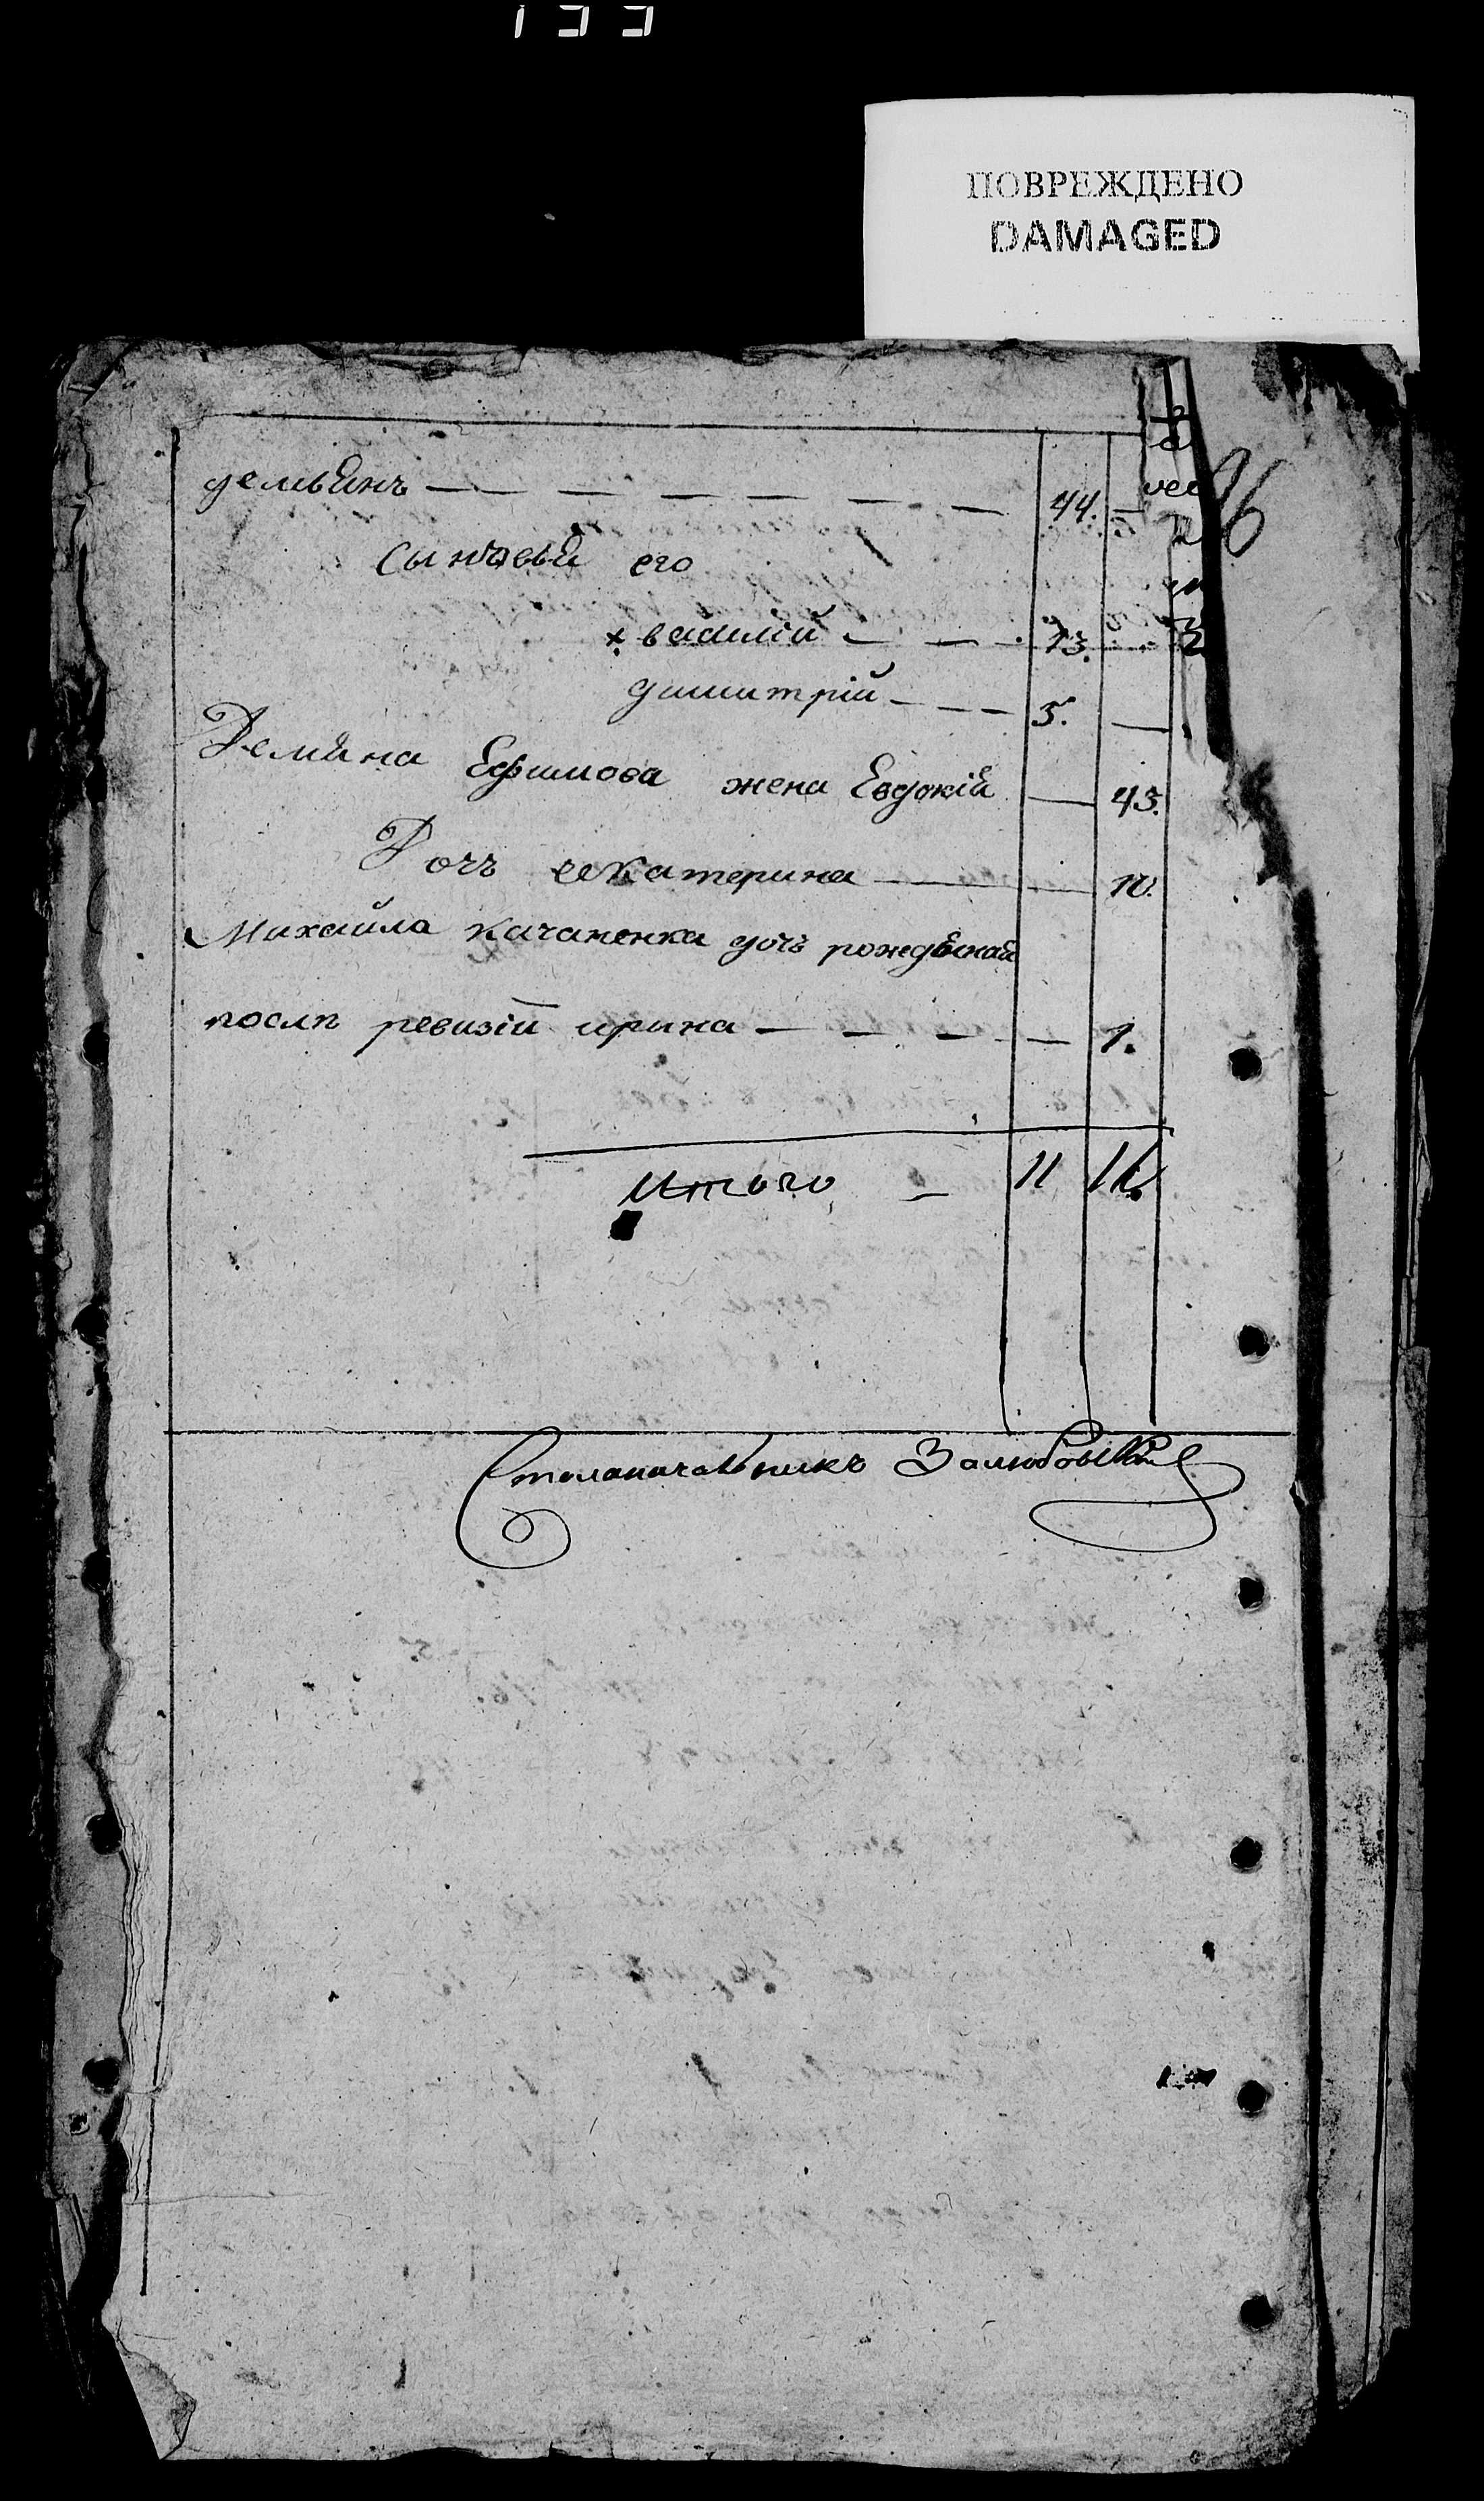 133
ПОВРЕЖДЕНО
DAMAGED
96
демьянъ — — — — — — — 44. —
Сыновья его
× василій — — — 13. —
димитрій — — — 5. —
Демяна Ефимова жена Евдокія — 43.
Дочь екатерина — — 10.
Михайла Качаненка дочь рожденая
послѣ ревизіи ирина — — — — — 1.
Итого — 11 11.
Столоначальникъ